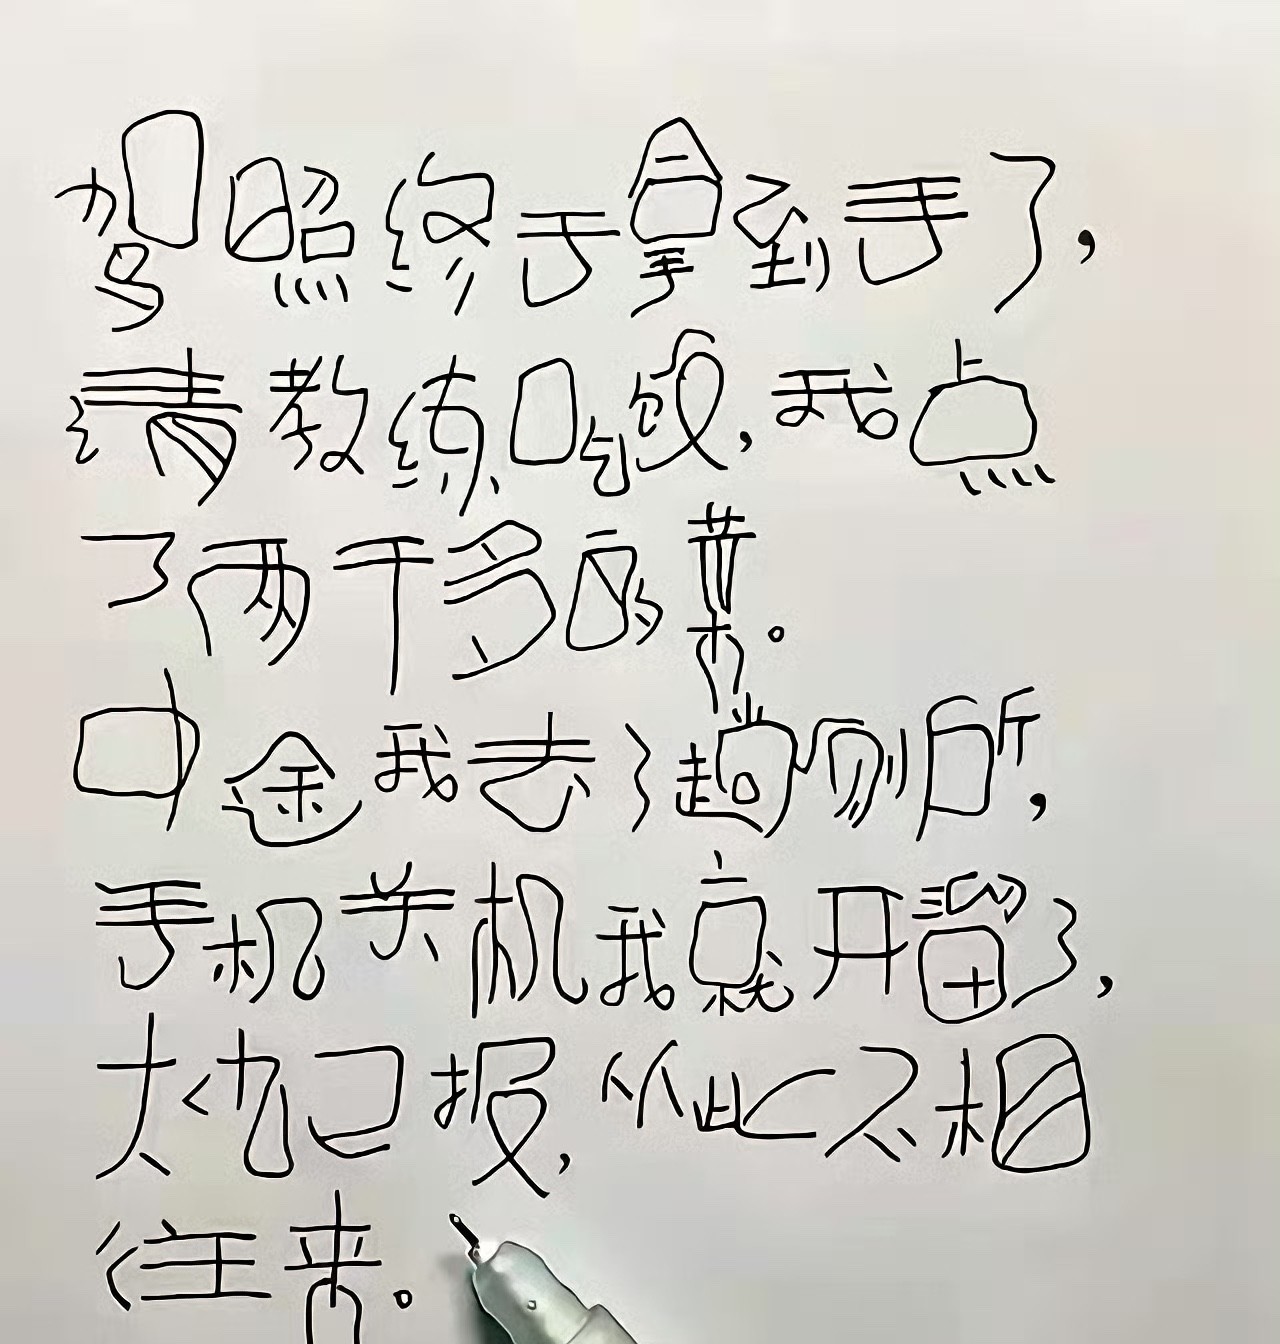 驾照终于拿到手了，
请教练吃饭，我点
了两千多的菜。
中途我去了趟厕所，
手机关机我就开留了，
大仇已报，从此不相
往来。